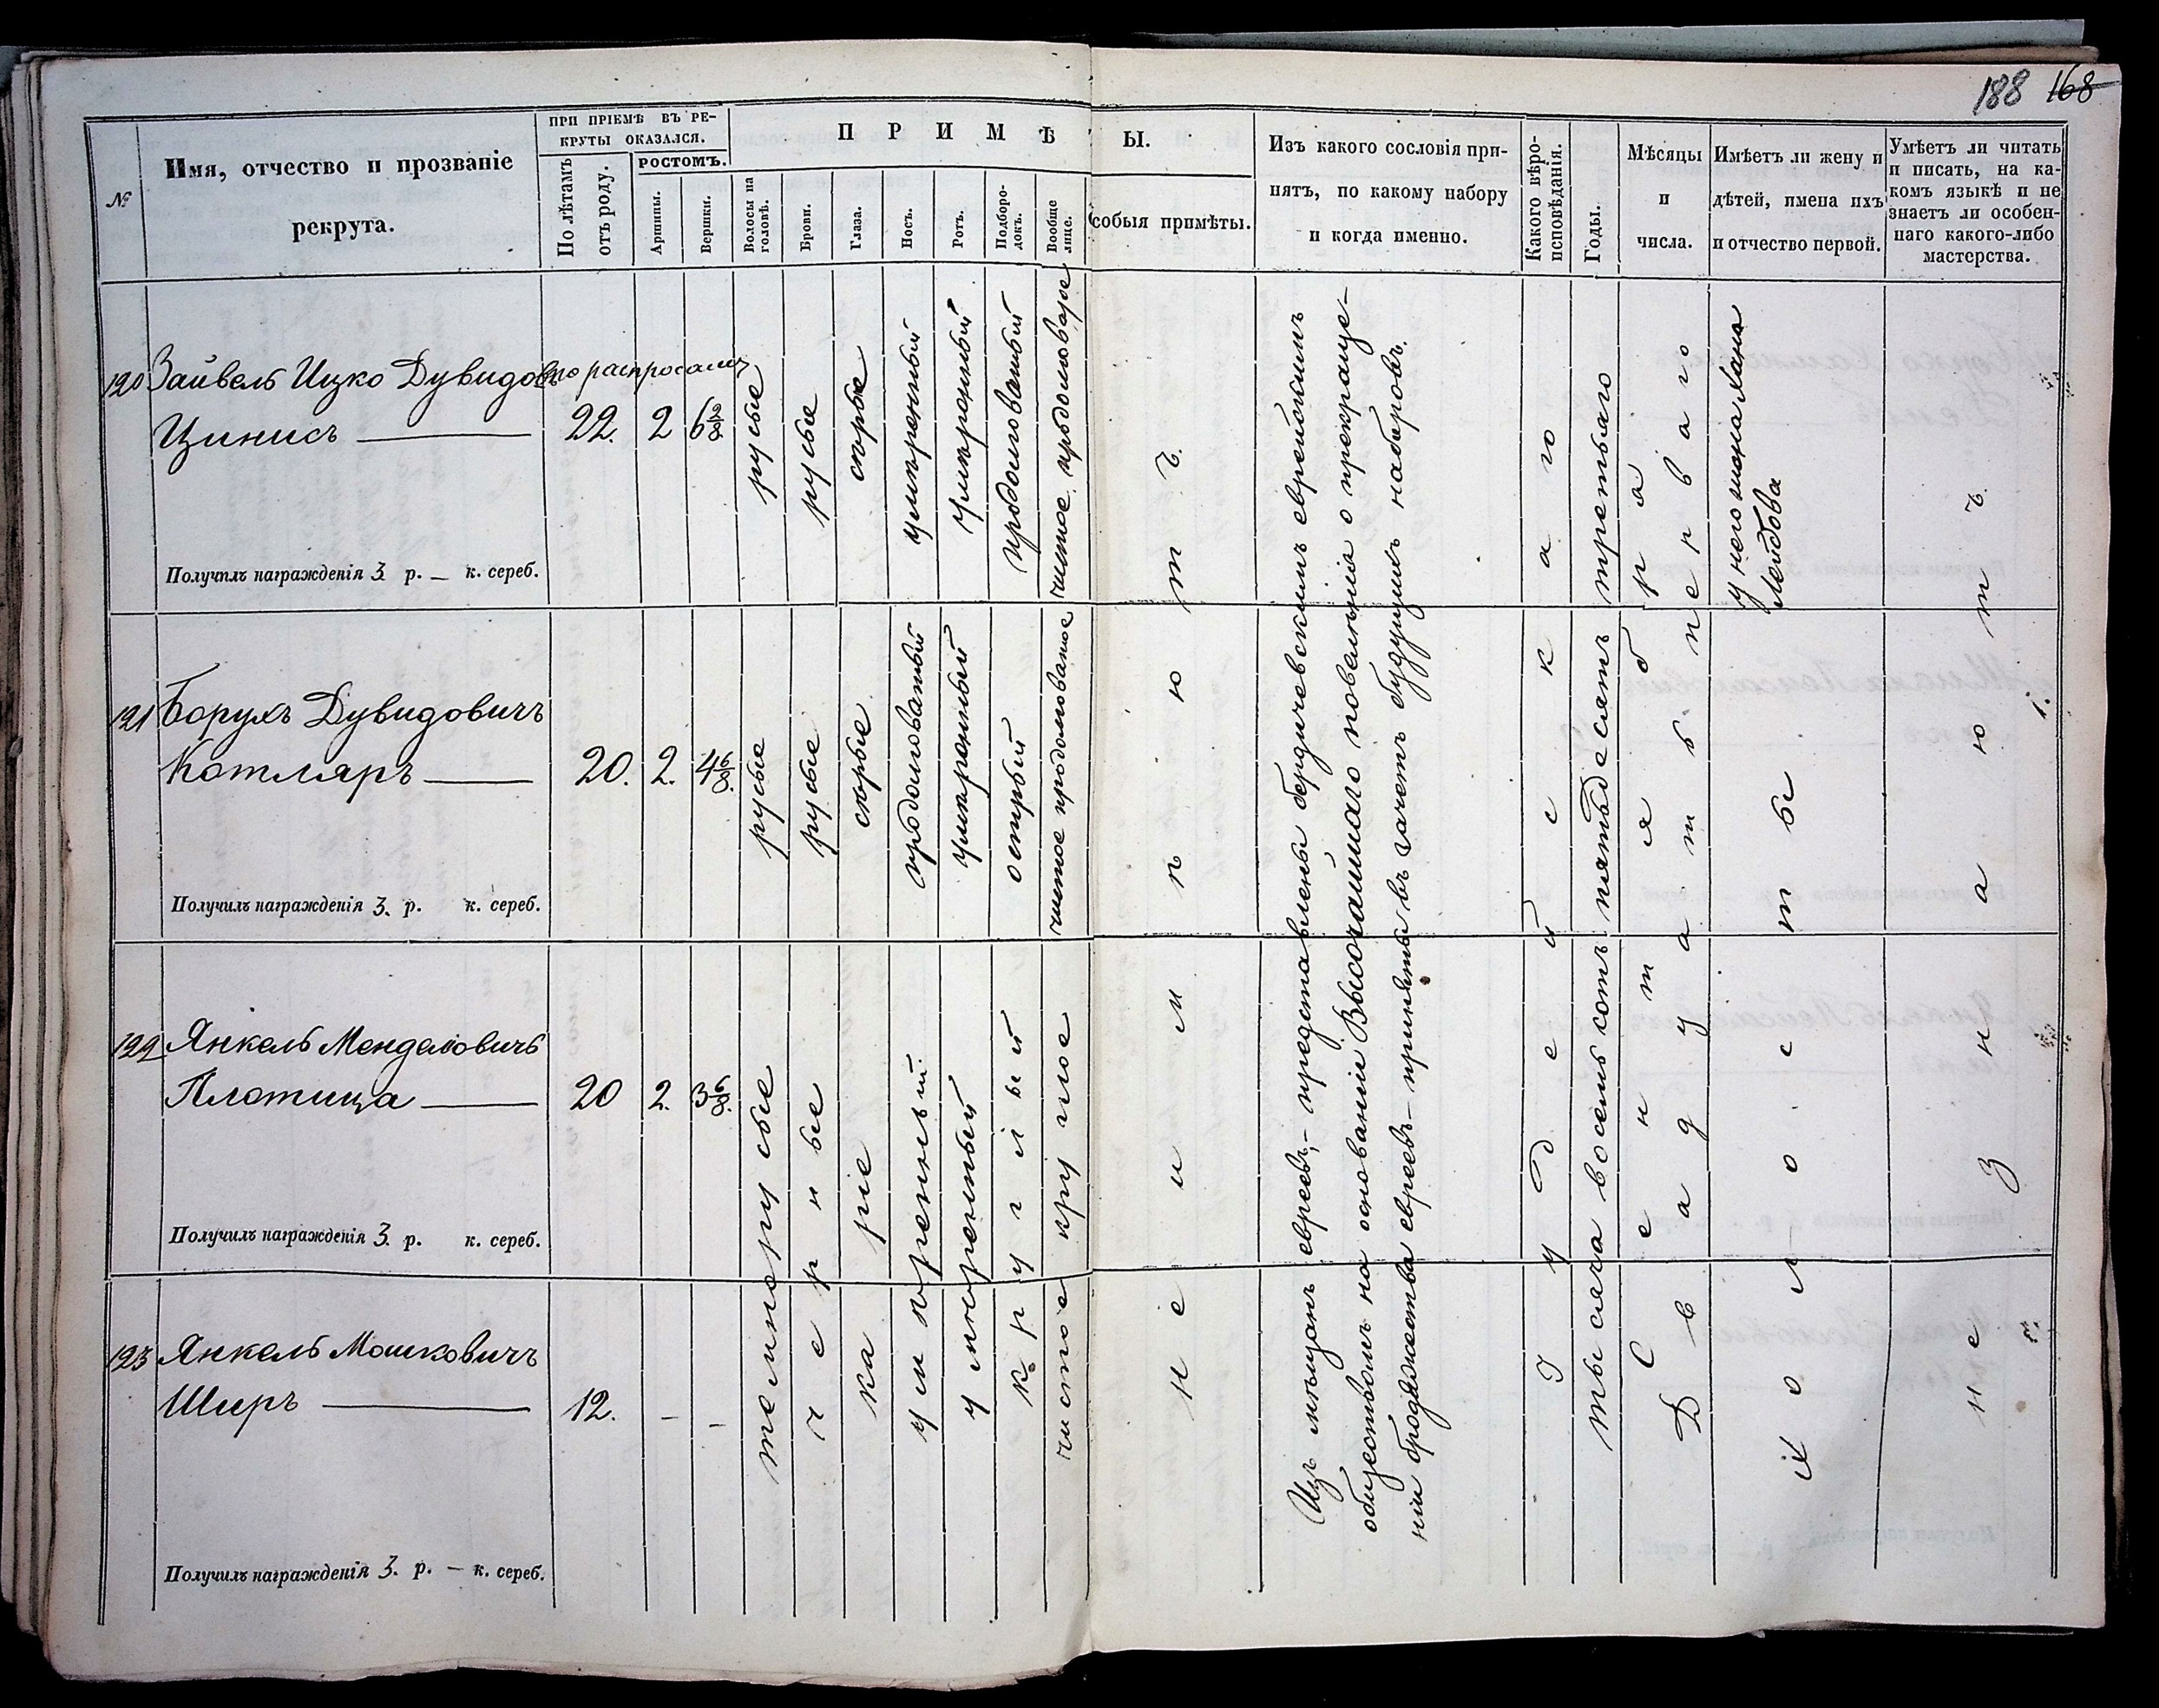 188 168
№
Имя, отчество и прозваніе
рекрута.
ПРИ ПРІЕМѢ ВЪ РЕ-
КРУТЫ ОКАЗАЛСЯ.
По лѣтамъ
отъ роду.
РОСТОМЪ.
Аршины.
Вершки.
ПРИМѢ
Ы.
Волосы на
головѣ.
Брови.
Глаза.
Носъ.
Ротъ.
Подборо-
докъ.
Вообще
лице.
собыя примѣты.
Изъ какого сословія при-
нятъ, по какому набору
и когда именно.
Какого вѣро-
исповѣданія.
Годы.
Мѣсяцы
и
числа.
Имѣетъ ли жену и
дѣтей, имена ихъ
и отчество первой.
Умѣетъ ли читать
и писать, на ка-
комъ языкѣ и не
знаетъ ли особен-
наго какого-либо
мастерства.
120 Зайвель Ицко Дувидовъ
Цинисъ
по распросамъ
22. 2 6 2/8
русые
русые
сѣрые
умѣренный
умѣренный
продолговатый
чистое, продолговатое
Получилъ награжденія 3 р. — к. сереб.
121 Борухъ Дувидовичъ
Котляръ
20. 2. 4 6/8.
русые
русые
сѣрые
продолговатый
умѣренный
острый
чистое продолговатое
Получилъ награжденія 3. р. к. сереб.
122 Янкель Менделовичъ
Плотица
20 2. 3 6/8.
Получилъ награжденія 3. р. к. сереб.
123 Янкель Мошковичъ
Ширъ
12. – –
Получилъ награжденія 3. р. — к. сереб.
темнорусые
черные
каріе
умѣренный
умѣренный
круглый
чистое круглое
Не имѣютъ
Изъ мѣщанъ евреевъ,– представлены бердичевскимъ еврейскимъ
обществомъ на основаніи Высочайшаго повелѣнія о прекраще-
ніи бродяжества евреевъ – приняты въ зачетъ будущихъ наборовъ.
Іудейскаго
тысяча восемьсотъ пятьдесятъ третьяго
Сентября
Двадцать перваго
У него жена Хана
Лейбова
холосты
не знаютъ